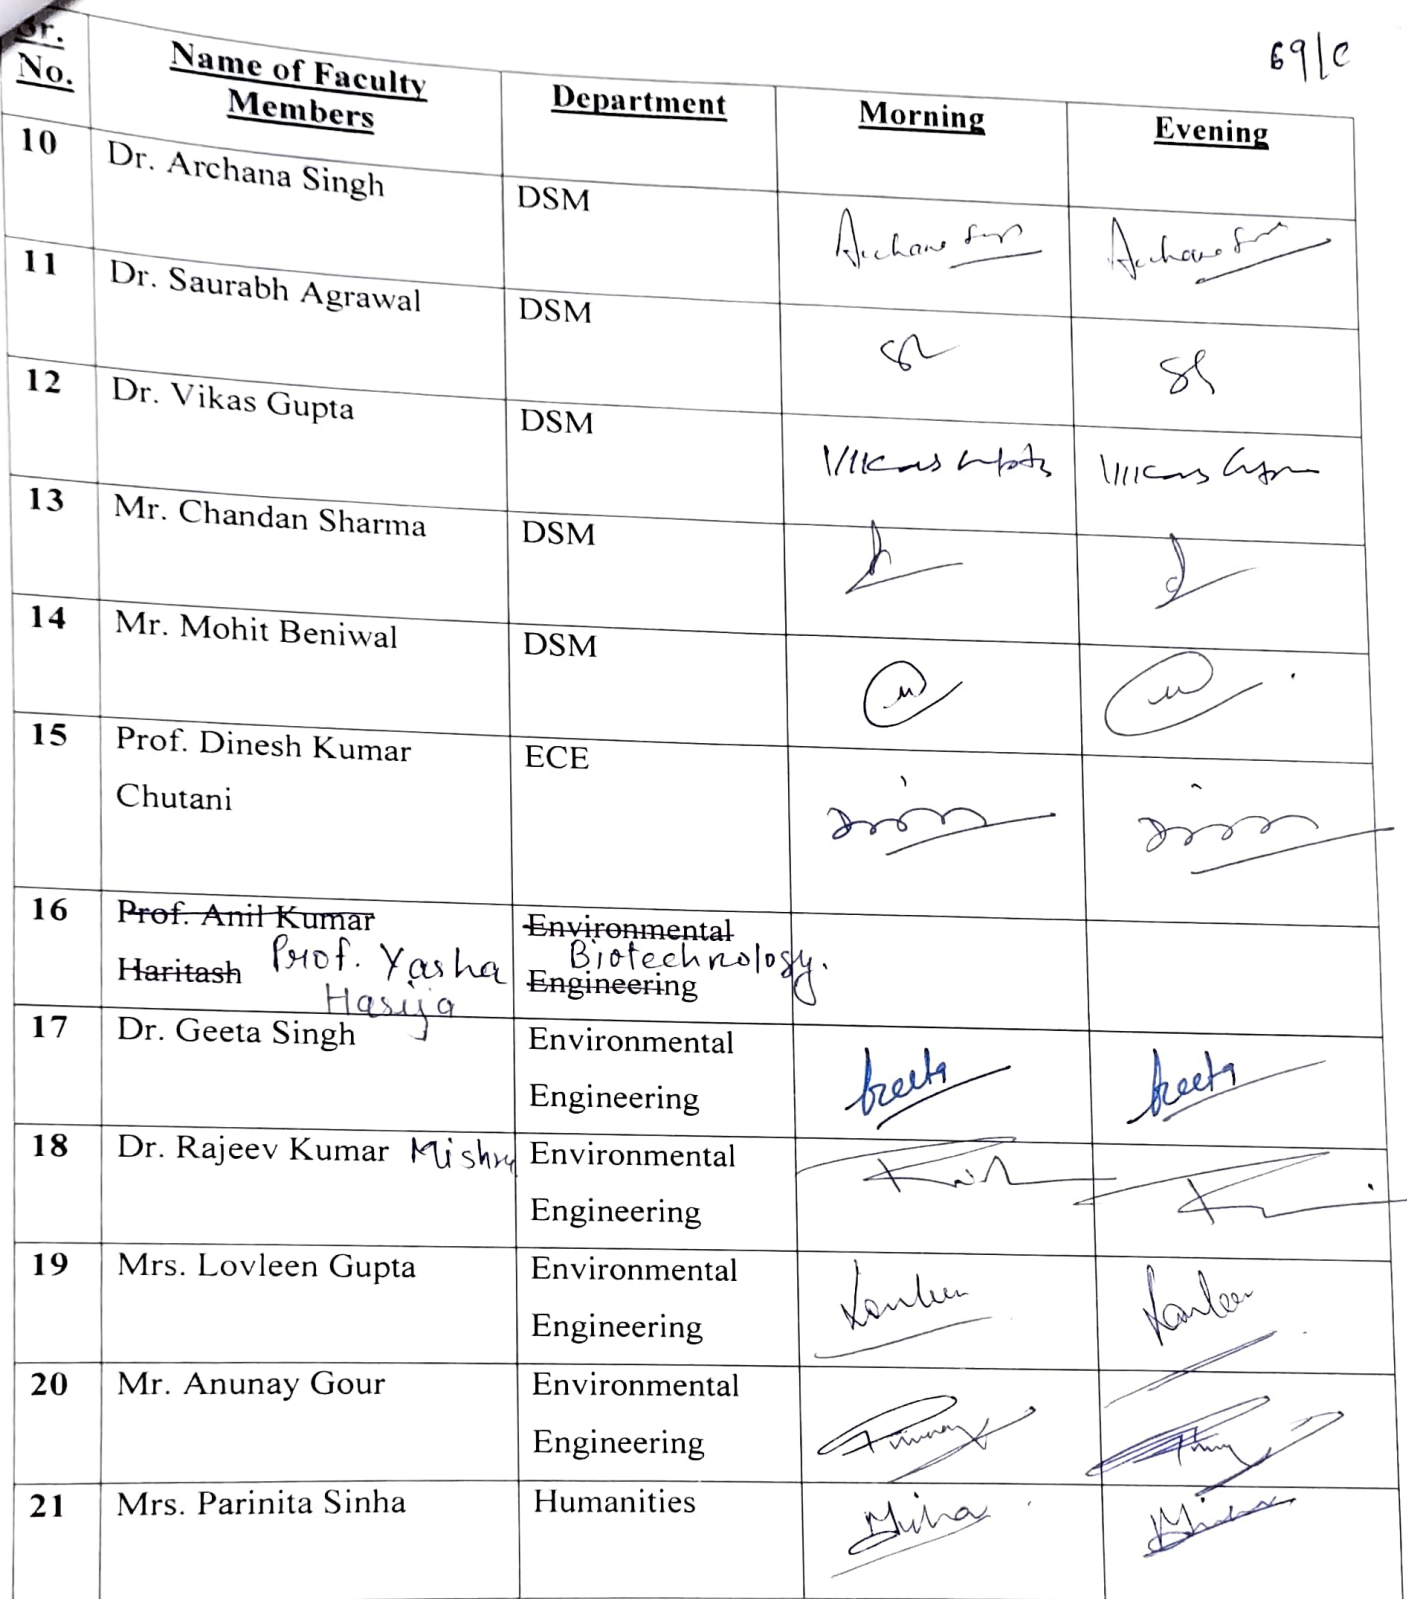 69/C
Sr. No. Name of Faculty Members Department Morning Evening
10 Dr. Archana Singh DSM Archana Archana
11 Dr. Saurabh Agrawal DSM
12 Dr. Vikas Gupta DSM Vikas Gupta Vikas Gupta
13 Mr. Chandan Sharma DSM
14 Mr. Mohit Beniwal DSM
15 Prof. Dinesh Kumar ECE
Chutani
16 Prof. Anil Kumar Environmental
Haritash Prof. Yasha Biotechnology.
Hasija Engineering
17 Dr. Geeta Singh Environmental Geeta Geeta
Engineering
18 Dr. Rajeev Kumar Mishra Environmental
Engineering
19 Mrs. Lovleen Gupta Environmental Lovleen Lovleen
Engineering
20 Mr. Anunay Gour Environmental
Engineering
21 Mrs. Parinita Sinha Humanities